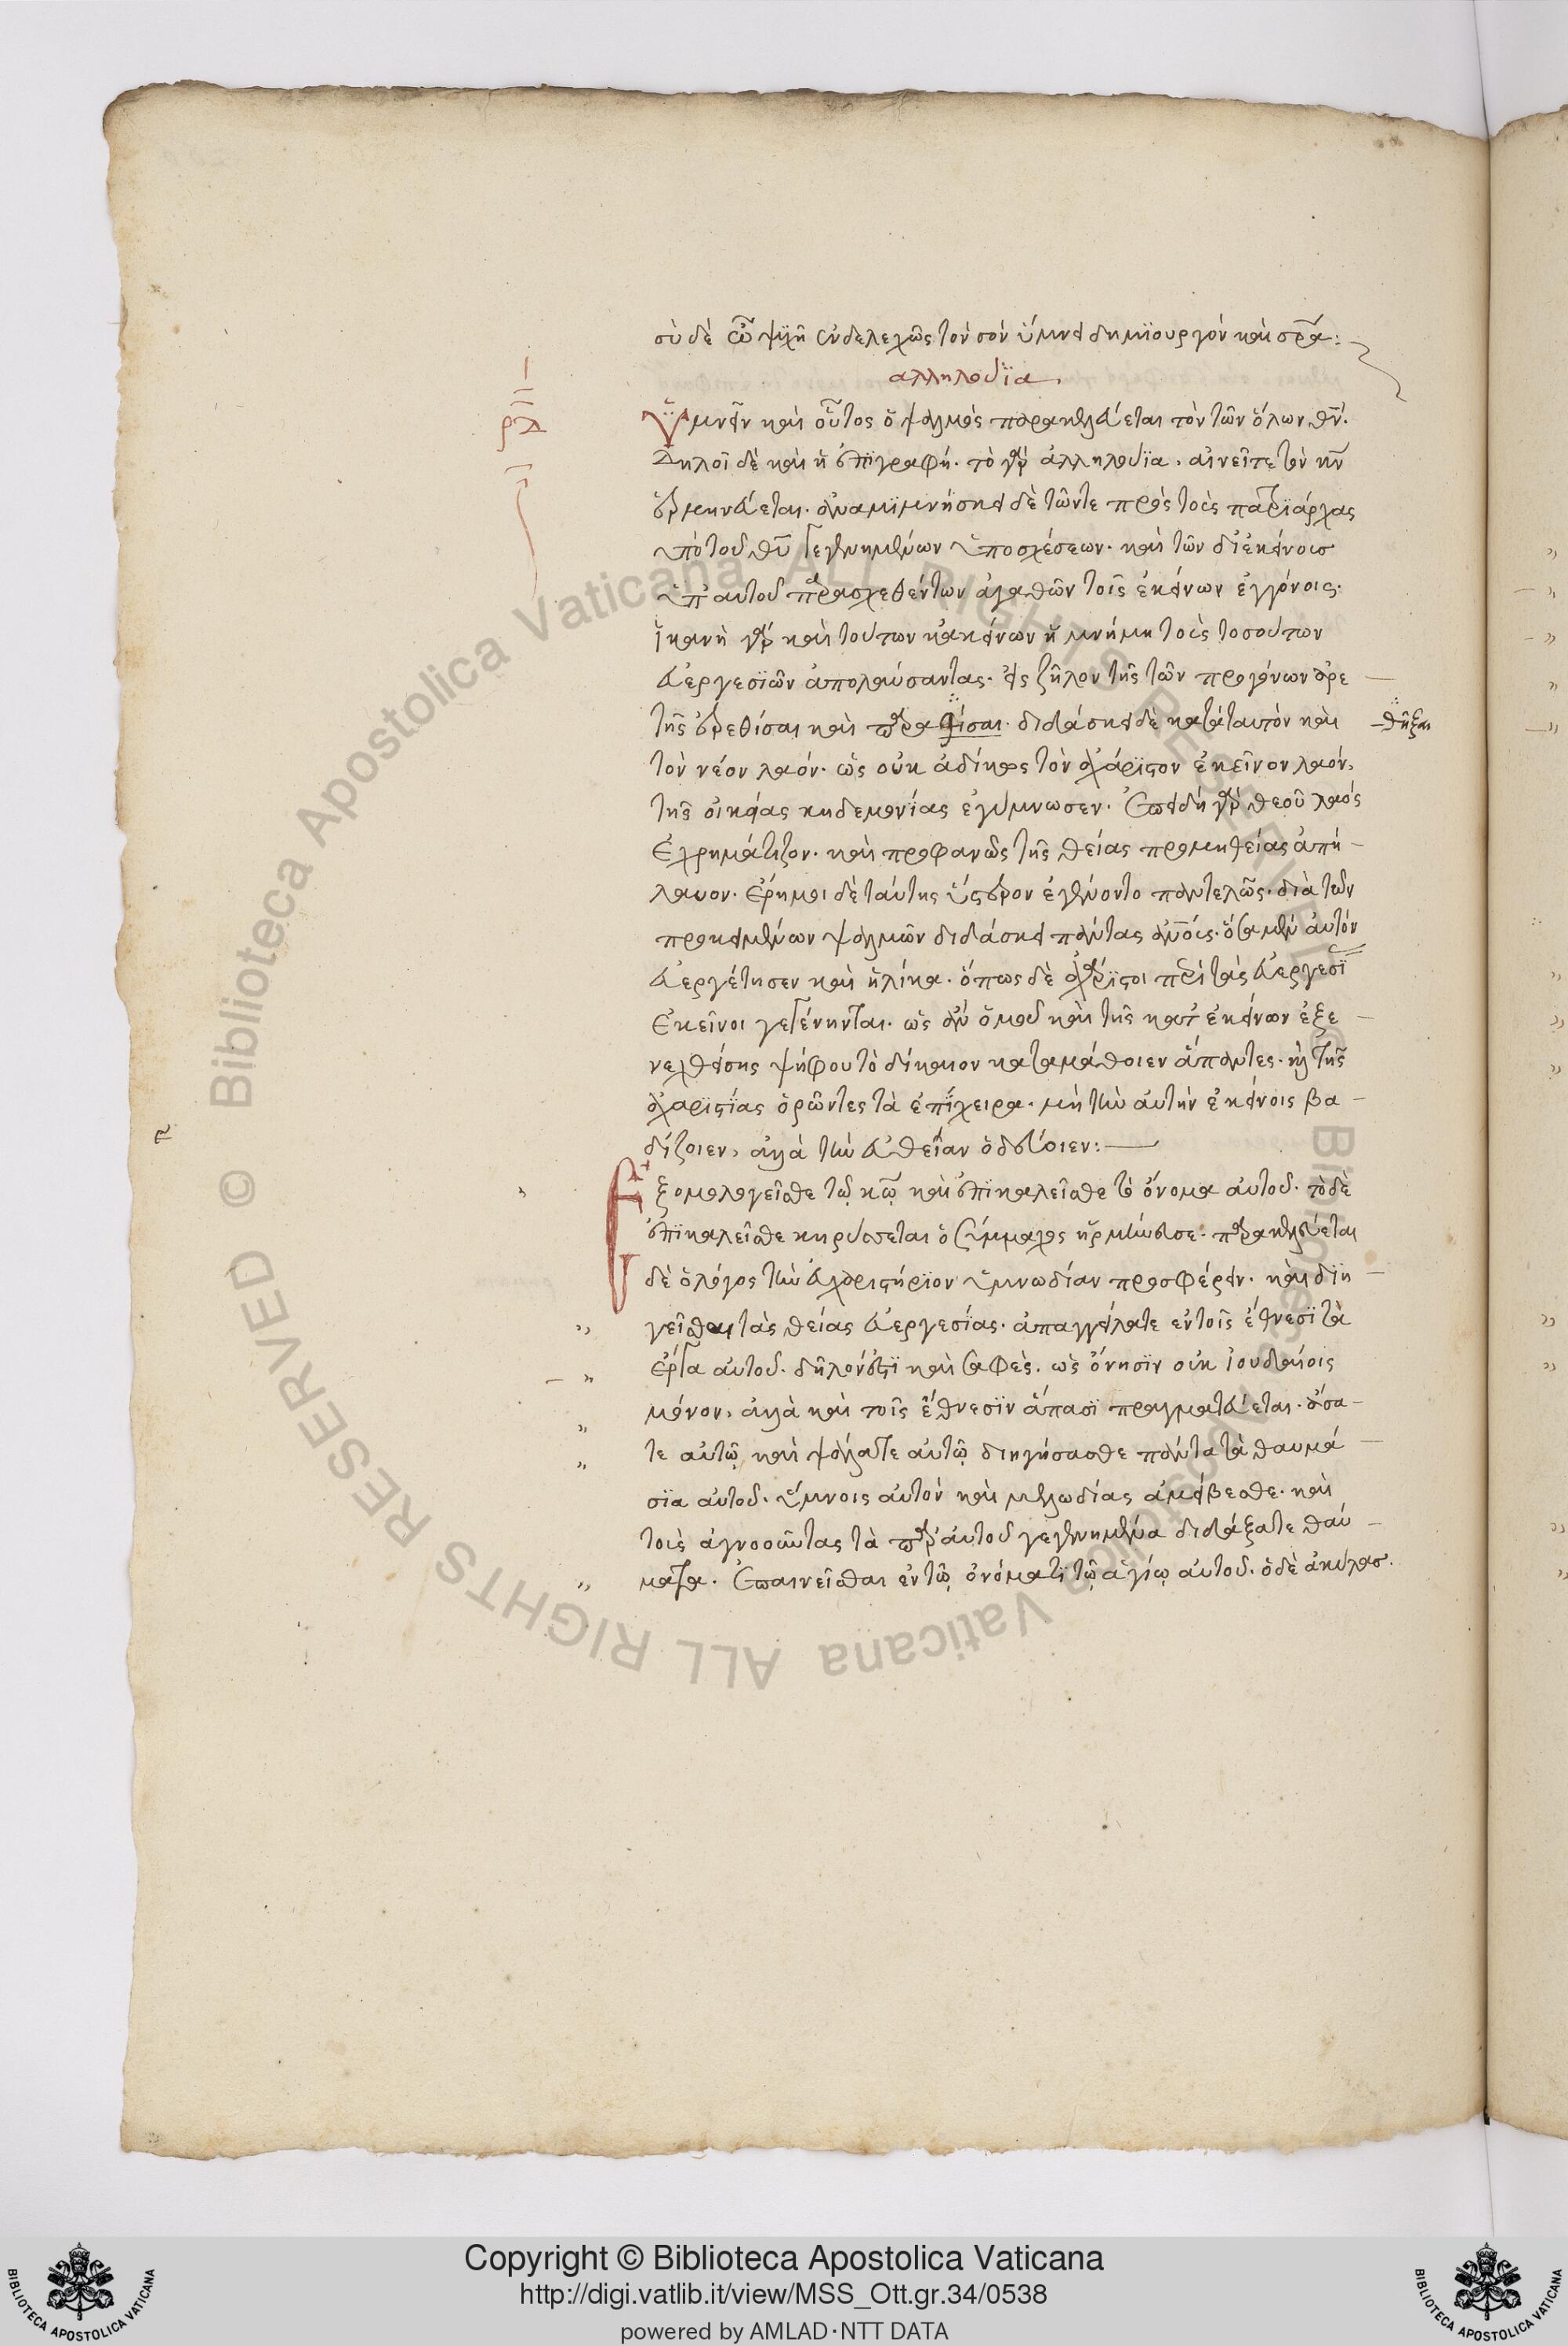 σὺ δὲ ὦ ψυχὴ ἐνδελεχῶς τὸν σὸν ὕμνει δημιουργὸν καὶ σρα:
αλληλούϊα.
ρδ
Ὑμνεῖν καὶ οὗτος ὁ ψαλμὸς παρακελεύεται τὸν τῶν ὅλων θν.
Δηλοῖ δὲ καὶ ἡ ἐπιγραφή. τὸ γὰρ ἀλληλούϊα, αἰνεῖτε τὸν κν
ἑρμηνεύεται. ἀναμιμνήσκει δὲ τῶντε πρὸς τοὺς πατριάρχας
ὑπὸ τοῦ θυ γεγενημένων ὑποσχέσεων. καὶ τῶν δι ἐκείνους
ὑπ αὐτοῦ παρασχεθέντων ἀγαθῶν τοῖς ἐκείνων ἐγγόνοις.
ἱκανὴ γὰρ καὶ τούτων κἀκείνων ἡ μνήμη τοὺς τοσούτων
εὐεργεσιῶν ἀπολαύσαντας. εἰς ζῆλον τῆς τῶν προγόνων ἀρε
τῆς ἐρεθίσαι καὶ παραθίσαι. διδάσκει δὲ κατὰ ταυτὸν καὶ
θῆξαι
τὸν νέον λαόν. ὡς οὐκ ἀδίκως τὸν ἀχάριστον ἐκεῖνον λαόν,
τῆς οἰκείας κηδεμονίας ἐγύμνωσεν. Ἐπειδὴ γὰρ θεοῦ λαός
ἐχρημάτιζον. καὶ προφανῶς τῆς θείας προμηθείας ἀπή-
λαυον. ἔρημοι δὲ ταύτης ὕστερον ἐγένοντο παντελῶς. διὰ τῶν
προκειμένων ψαλμῶν διδάσκει πάντας ἀνους. ὅσα μὲν αὐτὸν
εὐεργέτησεν καὶ ἡλίκα. ὅπως δὲ ἀχάριστοι περὶ τὰς εὐεργεσι
ἐκεῖνοι γεγένηνται. ὡς ἂν ὁμοῦ καὶ τῆς κατ ἐκείνων ἐξε
νεχθείσης ψήφου τὸ δίκαιον καταμάθοιεν ἅπαντες. καὶ τῆς
ἀχαριστίας ὁρῶντες τὰ ἐπίχειρα. μὴ τὴν αὐτὴν ἐκείνοις βα-
δίζοιεν, ἀλλὰ τὴν εὐθεῖαν ὁδεύοιεν:
Ἐξομολογεῖσθε τῷ κῳ καὶ ἐπικαλεῖσθε τὸ ὄνομα αὐτοῦ. τὸ δὲ
ἐπικαλεῖσθε κηρύσσεται ὁ Σύμμαχος ἡρμήνευσε. παρακελεύεται
δὲ ὁ λόγος τὴν εὐχαριστήριον ὑμνωδίαν προσφέρειν. καὶ διη
γεῖσθαι τὰς θείας εὐεργεσίας. ἀπαγγείλατε ἐν τοῖς ἔθνεσι τὰ
ἔργα αὐτοῦ. δῆλόν ἐστι καὶ σαφὲς. ὡς ὄνησιν οὐκ ἰουδαίοις
μόνον, ἀλλὰ καὶ τοῖς ἔθνεσιν ἅπασι πραγματεύεται. ᾄσα-
τε αὐτῷ καὶ ψάλατε αὐτῷ διηγήσασθε πάντα τὰ θαυμά
σια αὐτοῦ. ὕμνοις αὐτὸν καὶ μελωδίαις ἀμείβεσθε. καὶ
τοὺς ἀγνοοῦντας τὰ παρ αὐτοῦ γεγενημένα διδάξατε θαύ-
ματα. Ἐπαινεῖσθαι ἐν τῷ ὀνόματι τῷ ἁγίῳ αὐτοῦ. ὁ δὲ ἀκύλας.
Copyright © Biblioteca Apostolica Vaticana
http://digi.vatlib.it/view/MSS_Ott.gr.34/0538
powered by AMLAD·NTT DATA
BIBLIOTECA APOSTOLICA VATICANA
BIBLIOTECA APOSTOLICA VATICANA
© Biblioteca Apostolica Vaticana ALL RIGHTS RESERVED
© Biblioteca Apostolica Vaticana ALL RIGHTS RESERVED